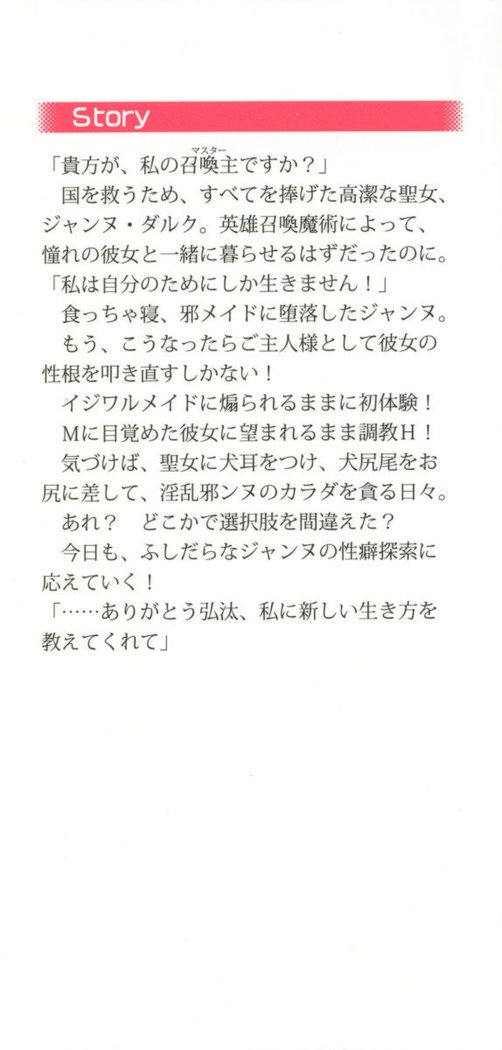 Story
「貴方が、私の召喚主ですか？」
マスター
　国を救うため、すべてを捧げた高潔な聖女、
ジャンヌ・ダルク。英雄召喚魔術によって、
憧れの彼女と一緒に暮らせるはずだったのに。
「私は自分のためにしか生きません！」
　食っちゃ寝、邪メイドに堕落したジャンヌ。
　もう、こうなったらご主人様として彼女の
性根を叩き直すしかない！
　イジワルメイドに煽られるままに初体験！
　Ｍに目覚めた彼女に望まれるまま調教Ｈ！
　気づけば、聖女に犬耳をつけ、犬尻尾をお
尻に差して、淫乱邪ンヌのカラダを貪る日々。
　あれ？　どこかで選択肢を間違えた？
　今日も、ふしだらなジャンヌの性癖探索に
応えていく！
「……ありがとう弘汰、私に新しい生き方を
教えてくれて」